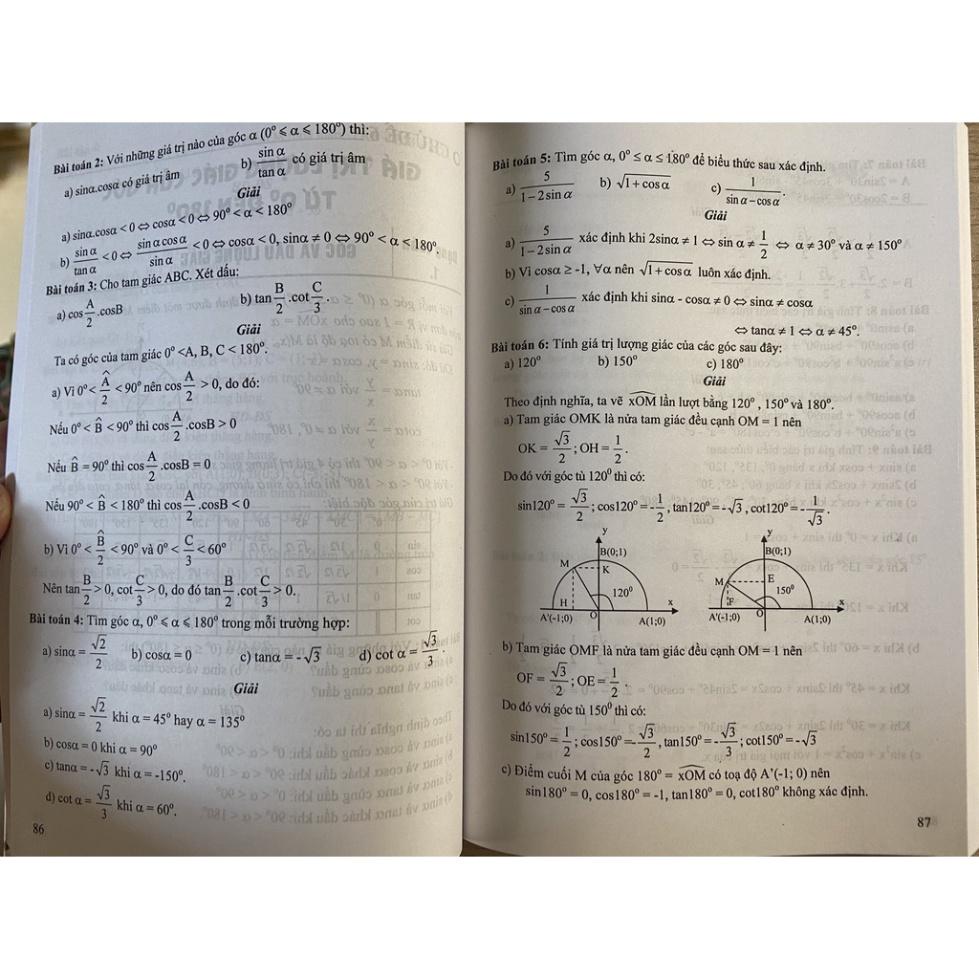 Bài toán 2: Với những giá trị nào của góc α (0° ⩽ α ⩽ 180°) thì:
a) sinα.cosα có giá trị âm b) sin α / tan α có giá trị âm
Giải
a) sinα.cosα < 0 ⇔ cosα < 0 ⇔ 90° < α < 180°
b) sin α / tan α < 0 ⇔ sin α cos α / sin α < 0 ⇔ cosα < 0, sinα ≠ 0 ⇔ 90° < α ⩽ 180°.
Bài toán 3: Cho tam giác ABC. Xét dấu:
a) cos A/2 .cosB b) tan B/2 .cot C/3 .
Giải
Ta có góc của tam giác 0° <A, B, C < 180°.
a) Vì 0° < Â/2 < 90° nên cos A/2 > 0, do đó:
Nếu 0° < B̂ < 90° thì cos A/2 .cosB > 0
Nếu B̂ = 90° thì cos A/2 .cosB = 0
Nếu 90° < B̂ < 180° thì cos A/2 .cosB < 0
b) Vì 0° < B̂/2 < 90° và 0° < Ĉ/3 < 60°
Nên tan B/2 > 0, cot C/3 > 0, do đó tan B/2 .cot C/3 > 0.
Bài toán 4: Tìm góc α, 0° ⩽ α ⩽ 180° trong mỗi trường hợp:
a) sinα = √2/2 b) cosα = 0 c) tanα = -√3 d) cot α = √3/3 .
Giải
a) sinα = √2/2 khi α = 45° hay α = 135°
b) cosα = 0 khi α = 90°
c) tanα = -√3 khi α = -150°.
d) cot α = √3/3 khi α = 60°.
86
Bài toán 5: Tìm góc α, 0° ≤ α ≤ 180° để biểu thức sau xác định.
a) 5 / (1 − 2 sin α) b) √(1 + cos α) c) 1 / (sin α − cos α) .
Giải
a) 5 / (1 − 2 sin α) xác định khi 2sinα ≠ 1 ⇔ sin α ≠ 1/2 ⇔ α ≠ 30° và α ≠ 150°
b) Vì cosα ≥ -1, ∀α nên √(1 + cos α) luôn xác định.
c) 1 / (sin α − cos α) xác định khi sinα - cosα ≠ 0 ⇔ sinα ≠ cosα
⇔ tanα ≠ 1 ⇔ α ≠ 45°.
Bài toán 6: Tính giá trị lượng giác của các góc sau đây:
a) 120° b) 150° c) 180°
Giải
Theo định nghĩa, ta vẽ xOM lần lượt bằng 120° , 150° và 180°.
a) Tam giác OMK là nửa tam giác đều cạnh OM = 1 nên
OK = √3/2 ; OH = 1/2 .
Do đó với góc tù 120° thì có:
sin120° = √3/2 ; cos120° = -1/2 , tan120° = -√3 , cot120° = -1/√3 .
y
B(0;1)
M
K
120°
H
O
x
A'(-1;0)
A(1;0)
y
B(0;1)
M
E
150°
F
O
x
A'(-1;0)
A(1;0)
b) Tam giác OMF là nửa tam giác đều cạnh OM = 1 nên
OF = √3/2 ; OE = 1/2 .
Do đó với góc tù 150° thì có:
sin150° = 1/2 ; cos150° = -√3/2 , tan150° = -√3/3 ; cot150° = -√3
c) Điểm cuối M của góc 180° = xOM có toạ độ A'(-1; 0) nên
sin180° = 0, cos180° = -1, tan180° = 0, cot180° không xác định.
87